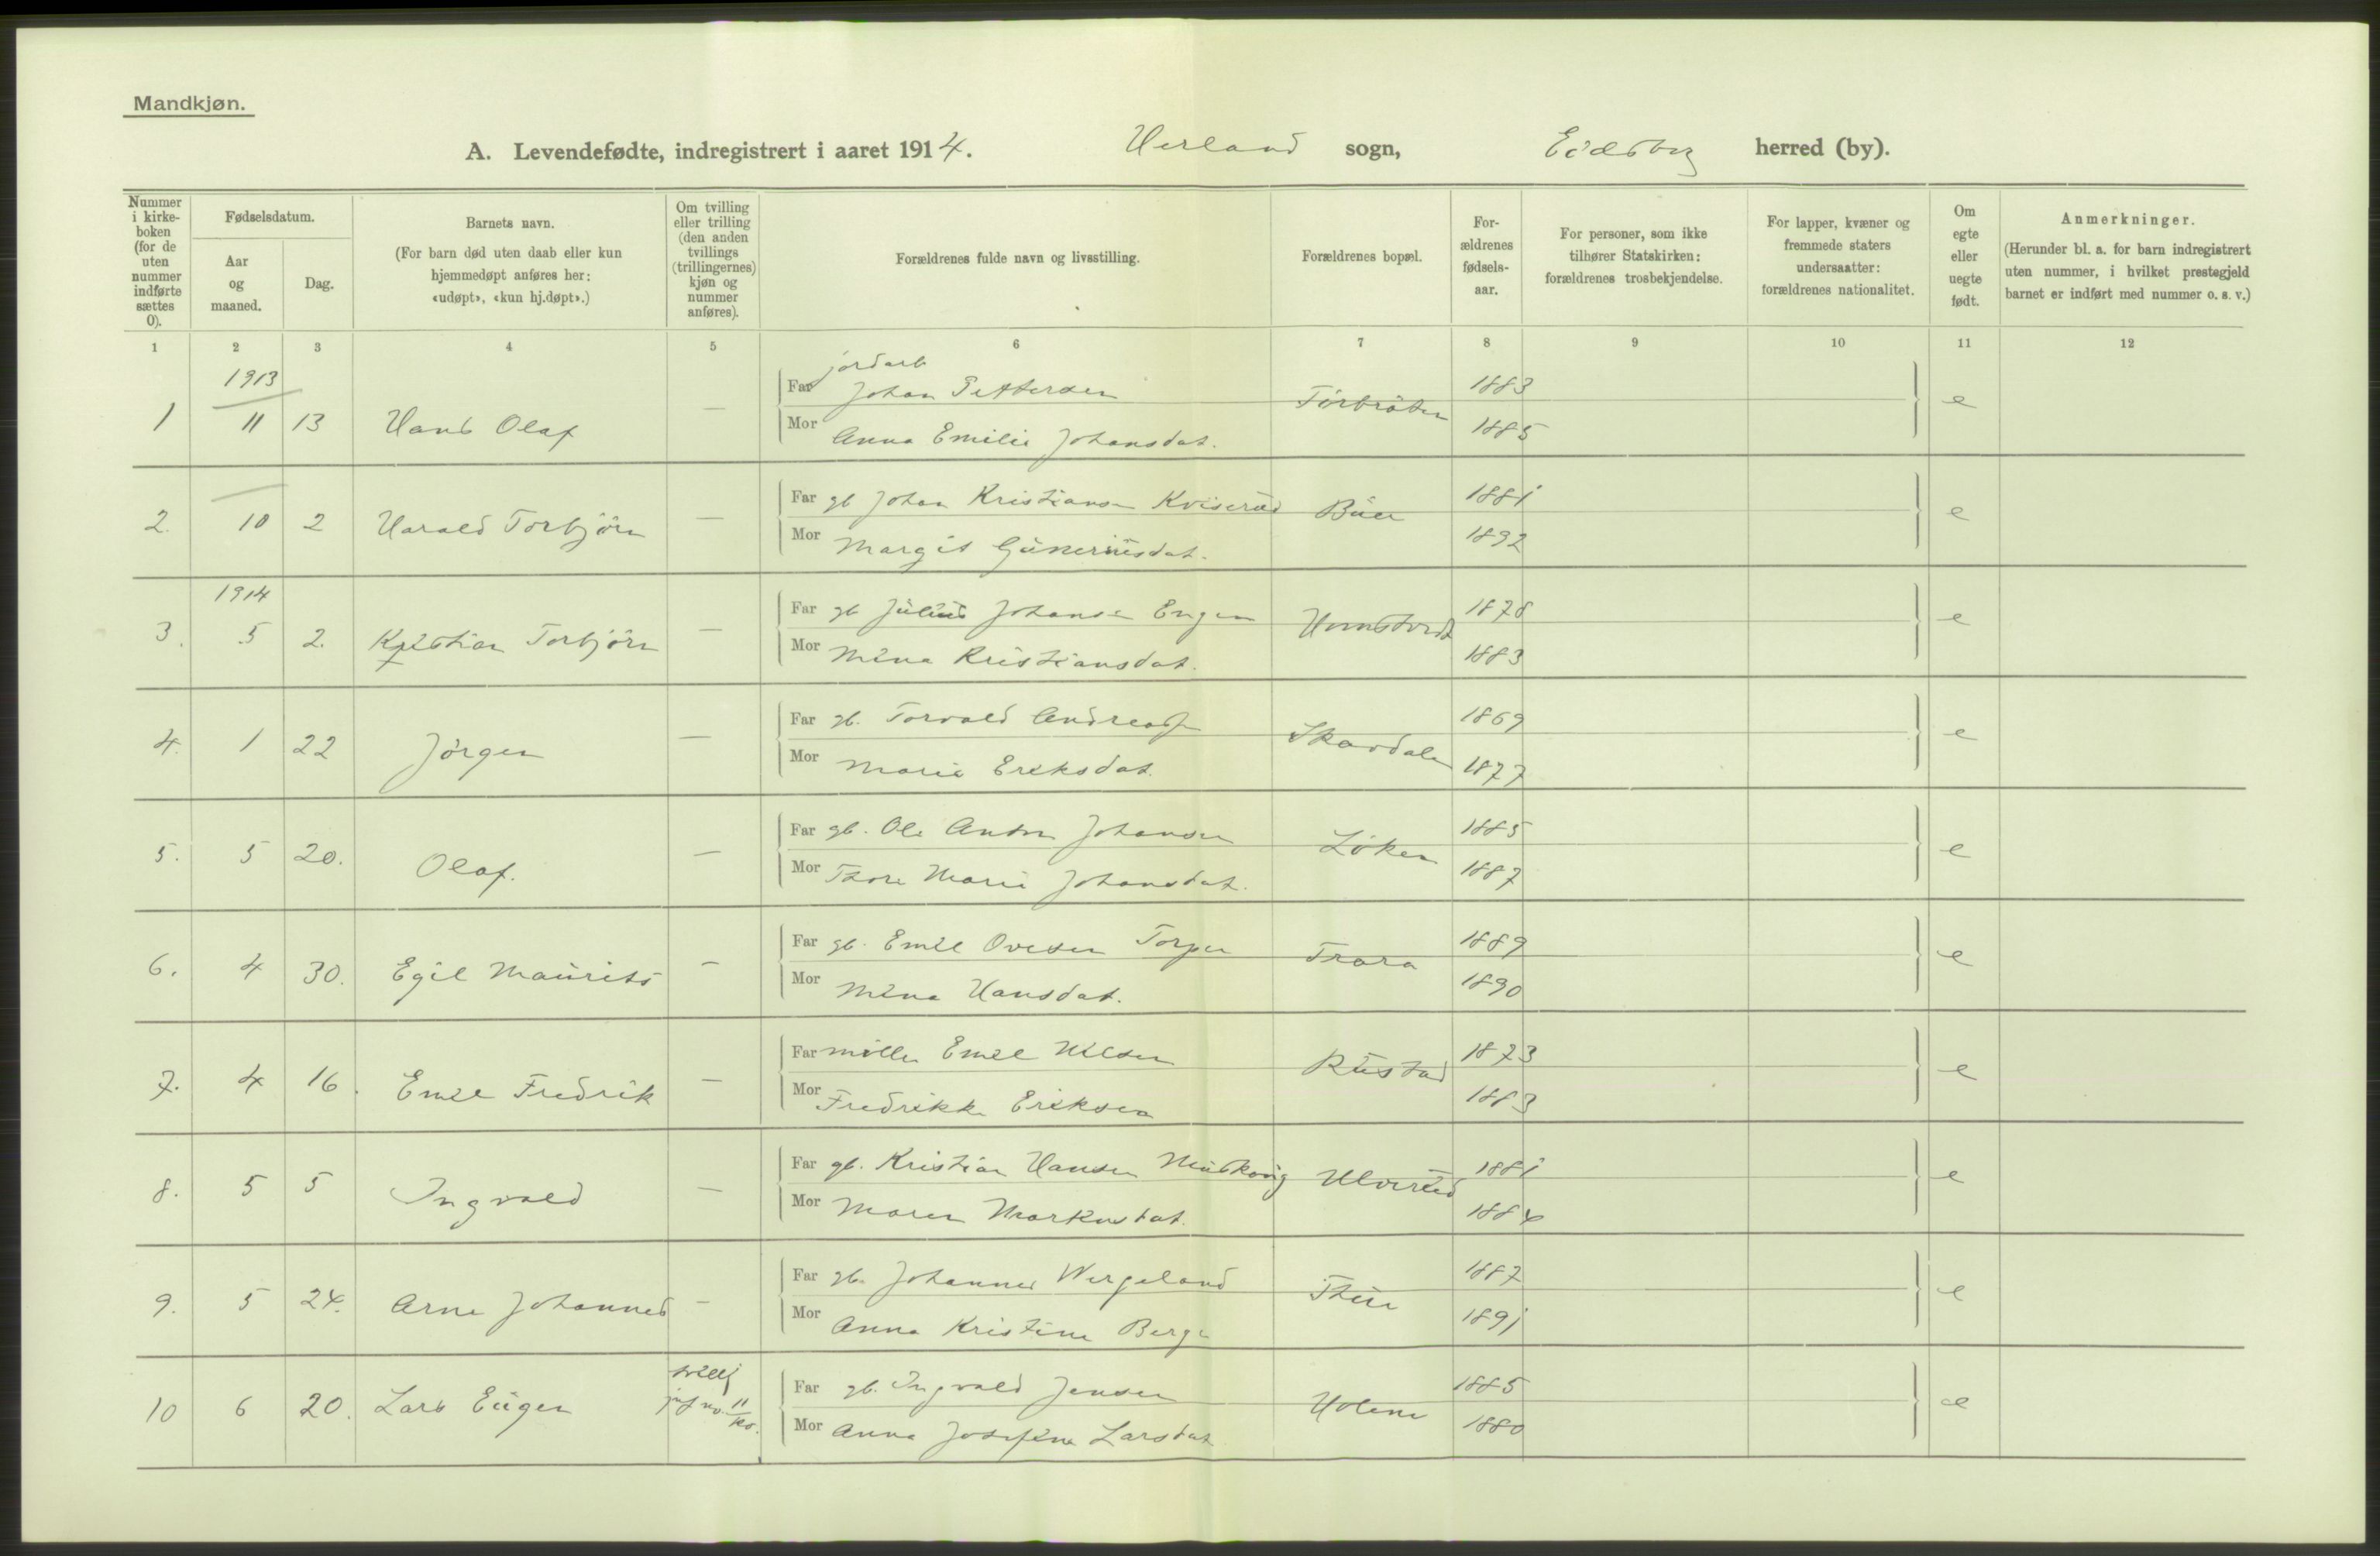 Mandkjøn.
A. Levendefødte, indregistrert i aaret 1914. Herland sogn, Eidsberg herred (by).
Nummer i kirkeboken (for de uten nummer indførte sættes 0).
Fødselsdatum.
Aar og maaned.
Dag.
Barnets navn.
(For barn død uten daab eller kun hjemmedøpt anføres her: «udøpt», «kun hj.døpt».)
Om tvilling eller trilling (den anden tvillings (trillingernes) kjøn og nummer anføres).
Forældrenes fulde navn og livsstilling.
Forældrenes bopæl.
Forældrenes fødselsaar.
For personer, som ikke tilhører Statskirken: forældrenes trosbekjendelse.
For lapper, kvæner og fremmede staters undersaatter: forældrenes nationalitet.
Om egte eller uegte født.
Anmerkninger.
(Herunder bl. a. for barn indregistrert uten nummer, i hvilket prestegjeld barnet er indført med nummer o. s. v.)
1 2 3 4 5 6 7 8 9 10 11 12
1913
1 11 13 Hans Olaf — Far jordarb Johan Pettersen 1883 e
Mor Anna Emilie Johansdat. 1885
2. 10 2 Harald Torbjörn — Far gb Johan Kristiansen Kviseröd Büer 1881 e
Mor Margit Güneriüsdat. 1892
1914
3. 5 2. Kristian Torbjörn — Far gb Jülius Johansen Engen 1878 e
Mor Mina Kristiansdat. 1883
4. 1 22 Jörgen — Far gb. Torvald Andreass. Skardalen 1869 e
Mor Marie Eriksdat. 1877
5. 5 20. Olaf. — Far gb. Ole Anton Johansen Löken 1885 e
Mor Thora Marie Johansdat. 1887
6. 4 30. Egil Maurits — Far gb. Emil Ovesen Torper Trara 1889 e
Mor Mina Hansdat. 1890
7. 4 16. Emil Fredrik — Far möller Emil Nilsen Rüstad 1873 e
Mor Fredrikke Eriksen 1883
8. 5 5 Ingvald — Far gb. Kristian Hansen 1881 e
Mor Maren Markusdat. 1884
9. 5 24. Arne Johannes — Far gb. Johannes Wergeland 1887 e
Mor Anna Kristine Berge 1891
10 6 20. Lars Eügen tvill. jvf no. 11 kv. Far gb. Ingvald Jensen Holene 1885 e
Mor Anna Josefine Larsdat 1880